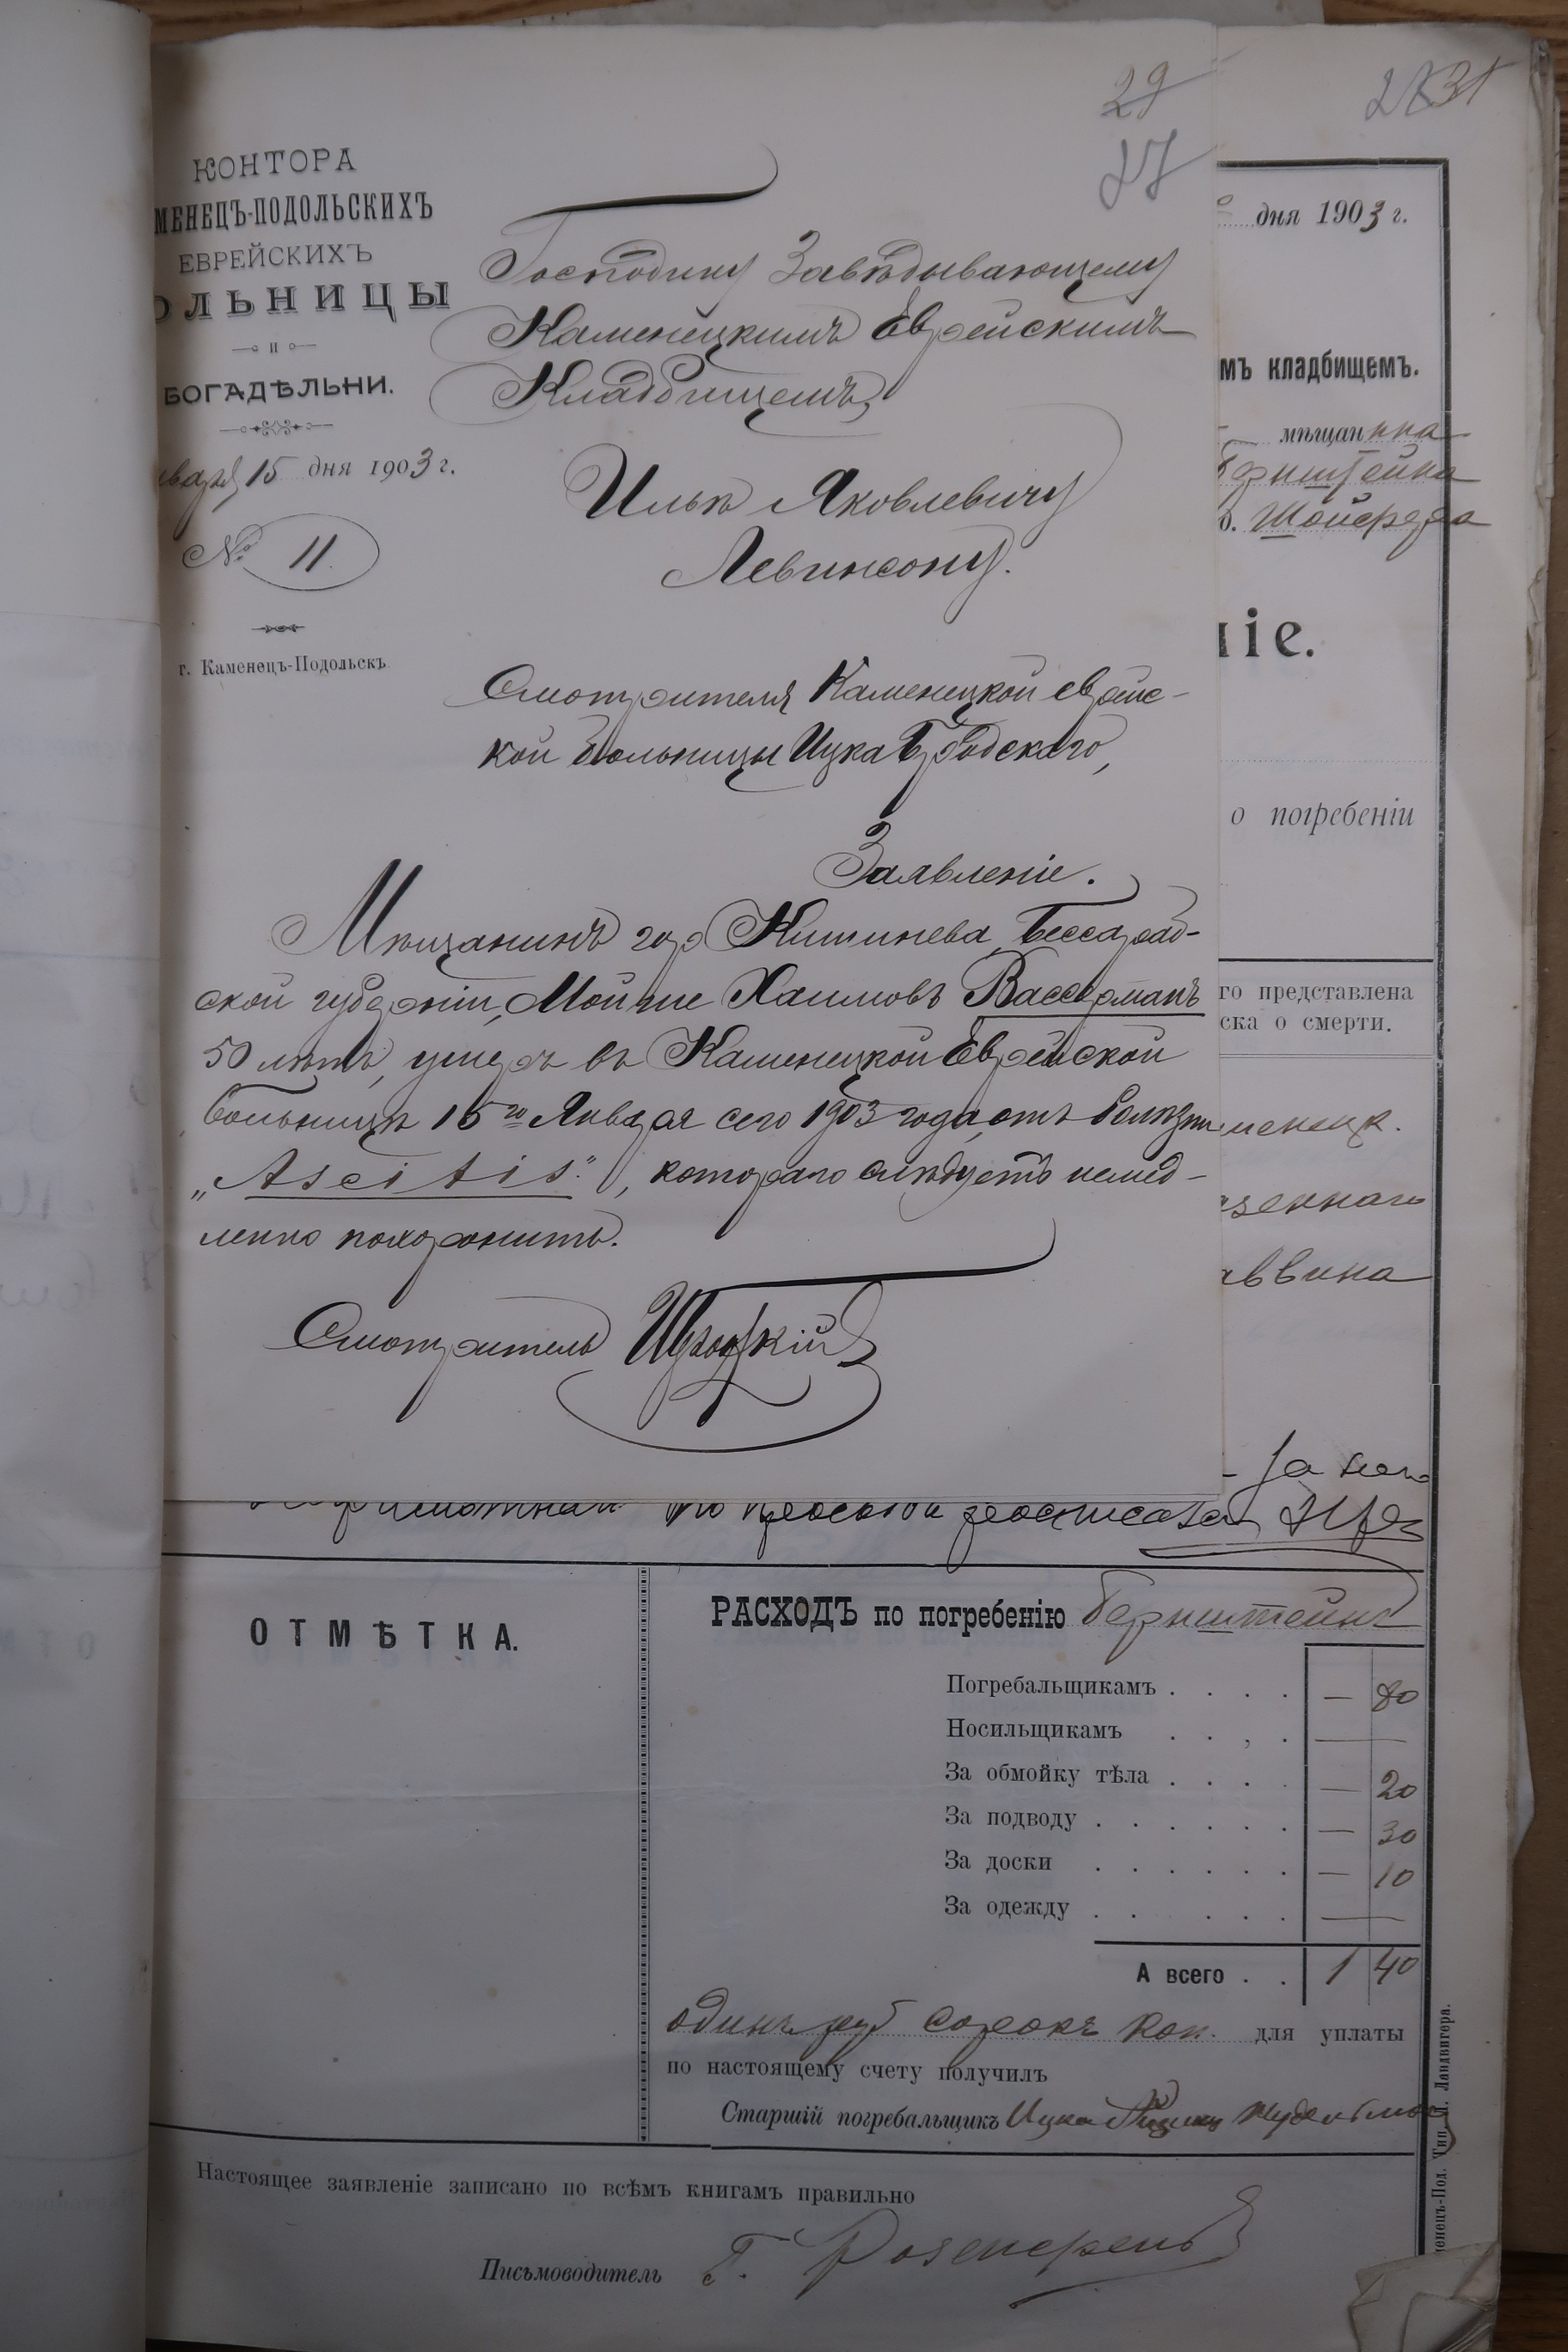 29
27
КОНТОРА
МЕНЕЦЪ-ПОДОЛЬСКИХЪ
ЕВРЕЙСКИХЪ
ОЛЬНИЦЫ
и
БОГАДѢЛЬНИ.
нваря 15 дня 1903 г.
№ 11.
г. Каменецъ-Подольскъ
Господину Завѣдывающему
Каменецкимъ Еврейскимъ
Кладбищемъ,
Ильѣ Яковлевичу
Левинсону.
Смотрителя Каменецкой еврейс-
кой больницы Ицка Бродскаго,
Заявленіе.
Мѣщанинъ гор Кишинева Бессараб-
ской губерніи, Мойше Хаимовъ Вассерманъ
50 лѣтъ, умеръ въ Каменецкой Еврейской
больницѣ 15го Января сего 1903 года, отъ болѣзни
„Ascitis“, котораго слѣдуетъ немед-
ленно похоронить.
Смотритель
31
дня 1903 г.
мъ кладбищемъ.
мѣщанина
ернштейна
Шойереда
ніе.
о погребеніи
го представлена
ска о смерти.
менецк.
азеннаго
аввина
за него
по просьбѣ росписался
ОТМѢТКА.
РАСХОДЪ по погребенію Бернштейнъ
Погребальщикамъ . . . . — 80
Носильщикамъ . . , . —
За обмойку тѣла . . . . — 20
За подводу . . . . . . — 30
За доски . . . . . . — 10
За одежду . . . . . . —
А всего . . 1 40
одинъ руб сорокъ коп. для уплаты
по настоящему счету получилъ
Старшій погребальщикъ Ицка
Настоящее заявленіе записано по всѣмъ книгамъ правильно
Письмоводитель Г. Розенкренъ
менецъ-Под. Тип. Л. Ландвигера.